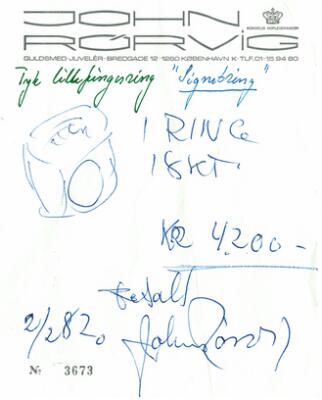 JOHN
RØRVIG
KONGELIG HOFLEVERANDØR
GULDSMED·JUVELÉR·BREDGADE 12·1260 KØBENHAVN K·TLF.01·15 94 80
Tyk lillefingerring "Signetring"
1 RING
18KT.
KR 4,200-
Betalt
2/2 82.
John Rørvig
№ 3673